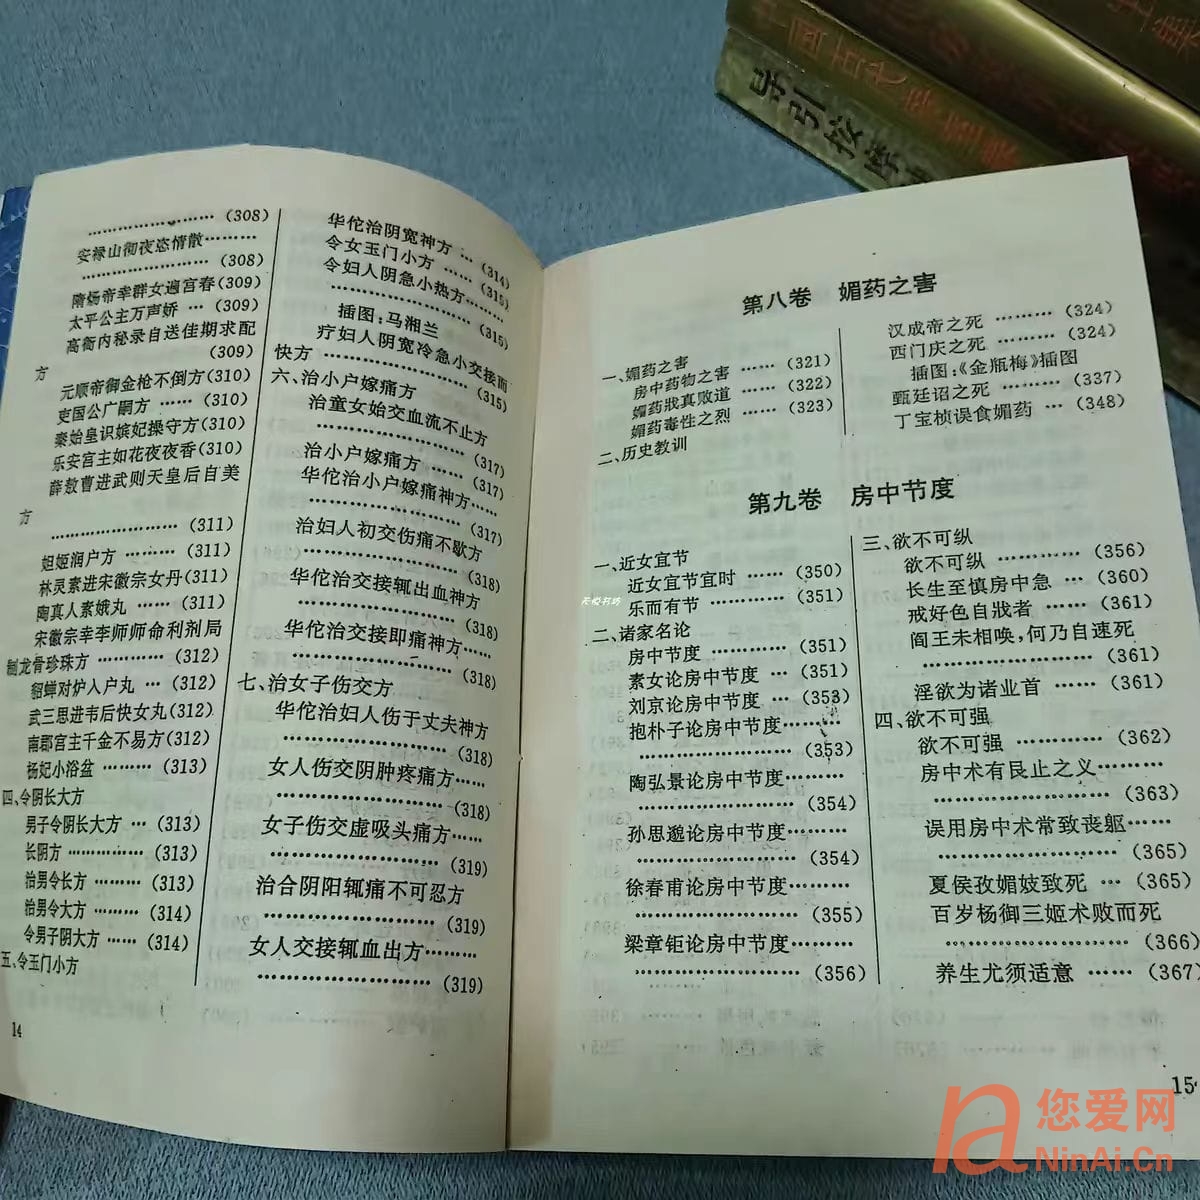 …………………… (308)
安禄山彻夜恣情散………
…………………… (308)
隋炀帝幸群女遍宫春(309)
太平公主万声娇 … (309)
高衙内秘录自送佳期求配
方 (309)
元顺帝御金枪不倒方(310)
吏国公广嗣方 …… (310)
秦始皇识嫔妃操守方(310)
乐安宫主如花夜夜香(310)
薛敖曹进武则天皇后自美
方
…………………… (311)
妲姬润户方 ……… (311)
林灵素进宋徽宗女丹(311)
陶真人素娥丸 …… (311)
宋徽宗幸李师师命利剂局
制龙骨珍珠方 ………… (312)
貂蝉对炉入户丸 … (312)
武三思进韦后快女丸(312)
南郡宫主千金不易方(312)
杨妃小浴盆 ……… (313)
四、令阴长大方
男子令阴长大方 … (313)
长阴方 …………… (313)
治男令长方 ……… (313)
治男令大方 ……… (314)
令男子阴大方 …… (314)
五、令玉门小方
14
华佗治阴宽神方 … (314)
令女玉门小方 …… (315)
令妇人阴急小热方………
…………………… (315)
插图:马湘兰
疗妇人阴宽冷急小交接而
快方 …………………… (315)
六、治小户嫁痛方
治童女始交血流不止方
…………………… (317)
治小户嫁痛方 …… (317)
华佗治小户嫁痛神方……
…………………… (317)
治妇人初交伤痛不歇方
…………………… (318)
华佗治交接辄出血神方
…………………… (318)
华佗治交接即痛神方……
…………………… (318)
七、治女子伤交方
华佗治妇人伤于丈夫神方
…………………… (318)
女人伤交阴肿疼痛方……
…………………… (318)
女子伤交虚吸头痛方……
…………………… (319)
治合阴阳辄痛不可忍方
…………………… (319)
女人交接辄血出方………
…………………… (319)
第八卷 媚药之害
一、媚药之害
房中药物之害 …… (321)
媚药戕真败道 …… (322)
媚药毒性之烈 …… (323)
二、历史教训
汉成帝之死 ……… (324)
西门庆之死 ……… (324)
插图:《金瓶梅》插图
甄廷诏之死 ……… (337)
丁宝桢误食媚药 … (348)
第九卷 房中节度
一、近女宜节
近女宜节宜时 …… (350)
乐而有节 ………… (351)
二、诸家名论
房中节度 ………… (351)
素女论房中节度 … (351)
刘京论房中节度 … (353)
抱朴子论房中节度………
…………………… (353)
陶弘景论房中节度………
…………………… (354)
孙思邈论房中节度………
…………………… (354)
徐春甫论房中节度………
…………………… (355)
梁章钜论房中节度………
…………………… (356)
三、欲不可纵
欲不可纵 ………… (356)
长生至慎房中急 … (360)
戒好色自戕者 …… (361)
阎王未相唤,何乃自速死
…………………… (361)
淫欲为诸业首 …… (361)
四、欲不可强
欲不可强 ………… (362)
房中术有艮止之义………
…………………… (363)
误用房中术常致丧躯……
…………………… (365)
夏侯孜媚妓致死 … (365)
百岁杨御三姬术败而死
…………………… (366)
养生尤须适意 …… (367)
15
天悦书坊
您爱网
NinAi.Cn